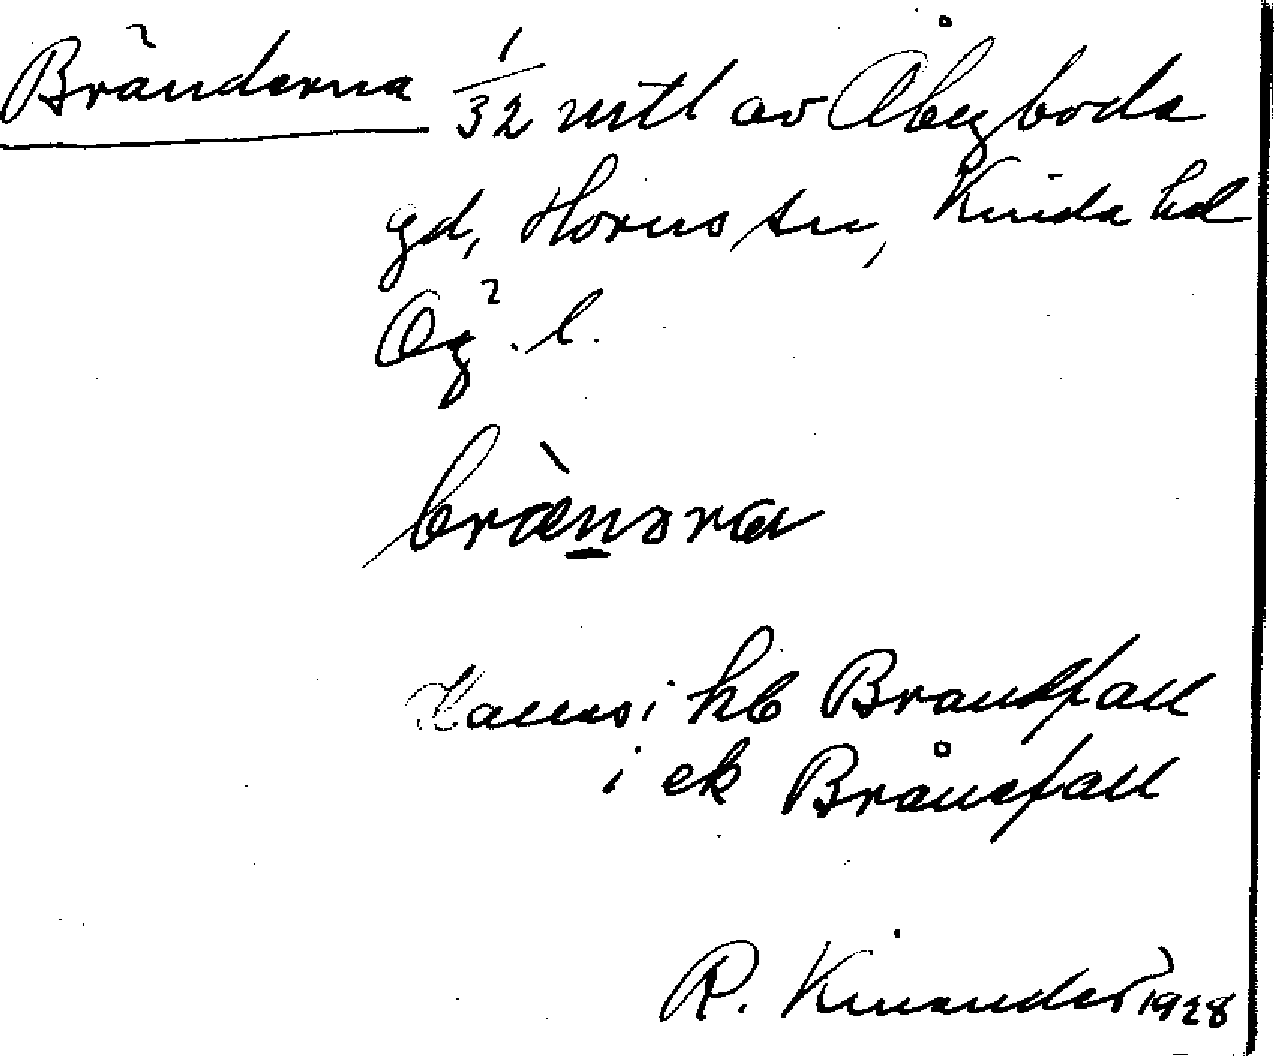 Bränderna 1/32 mtl av Åbyboda
gd, Horns sn, Kinda hd
Ög. l.
bræ̀nǝra
Kallas i hb Brantfall
i ek Brånefall
R. Kinander 1928